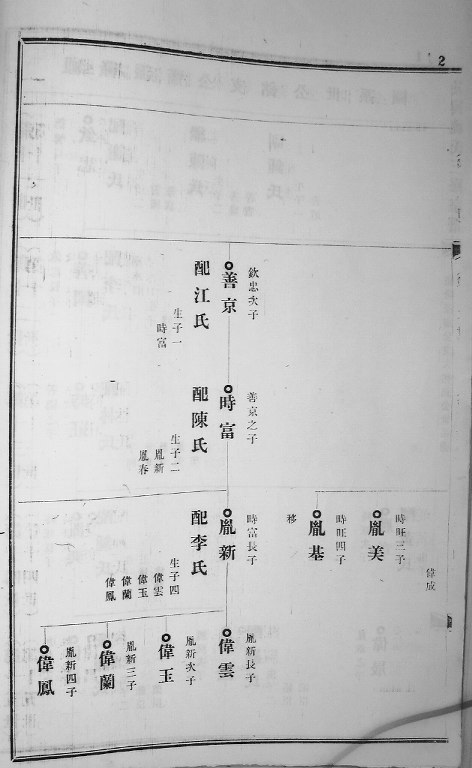 2
欽忠次子
善京
配江氏
生子一
時富
善京之子
時富
配陳氏
生子二
胤新
胤春
偉成
時旺三子
胤美
時旺四子
胤基
移
時富長子
胤新
配李氏
生子四
偉雲
偉玉
偉蘭
偉鳳
胤新長子
偉雲
胤新次子
偉玉
胤新三子
偉蘭
胤新四子
偉鳳